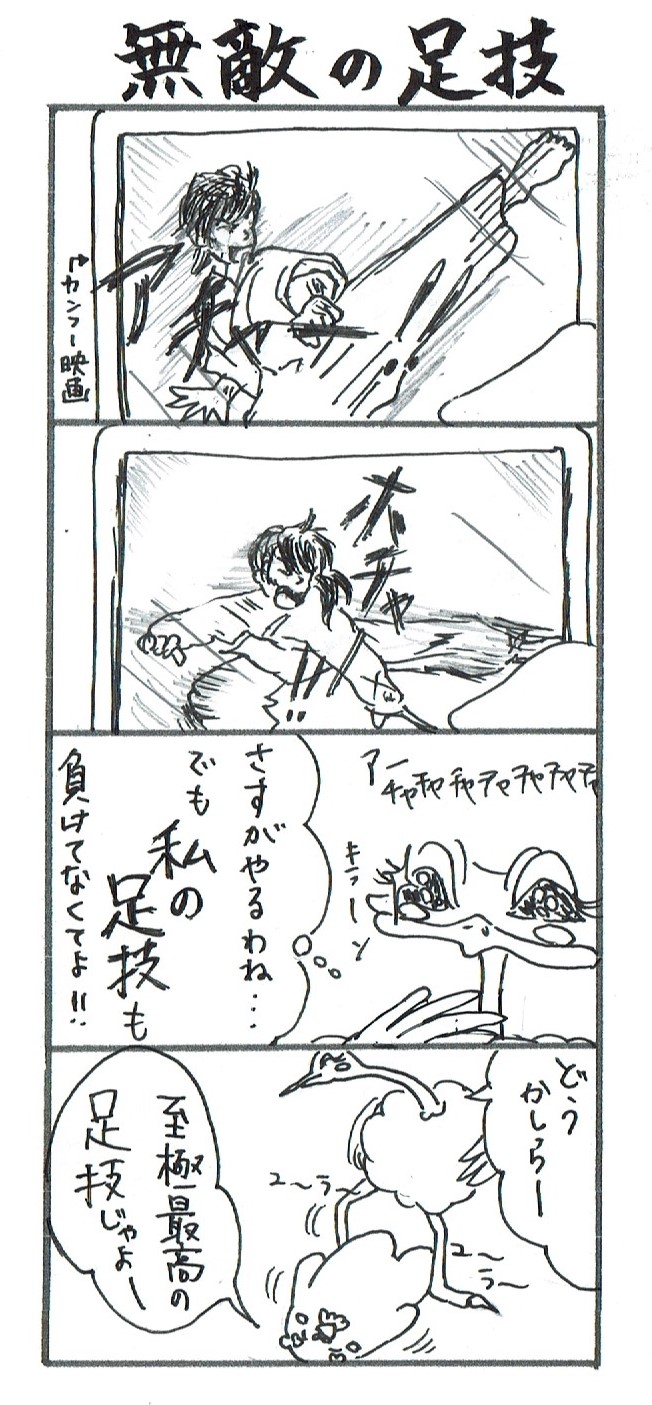 無敵の足技
カンフー映画
アチャー
ホチャ
!!
アー
チャチャチャチャチャチャチャ
キラーン
さすがやるわね…
でも
私の
足技も
負けてなくてよ!!
どう
かしらー
ユ〜ラ〜
ユ〜
ラ〜
至極最高の
足技じゃよー